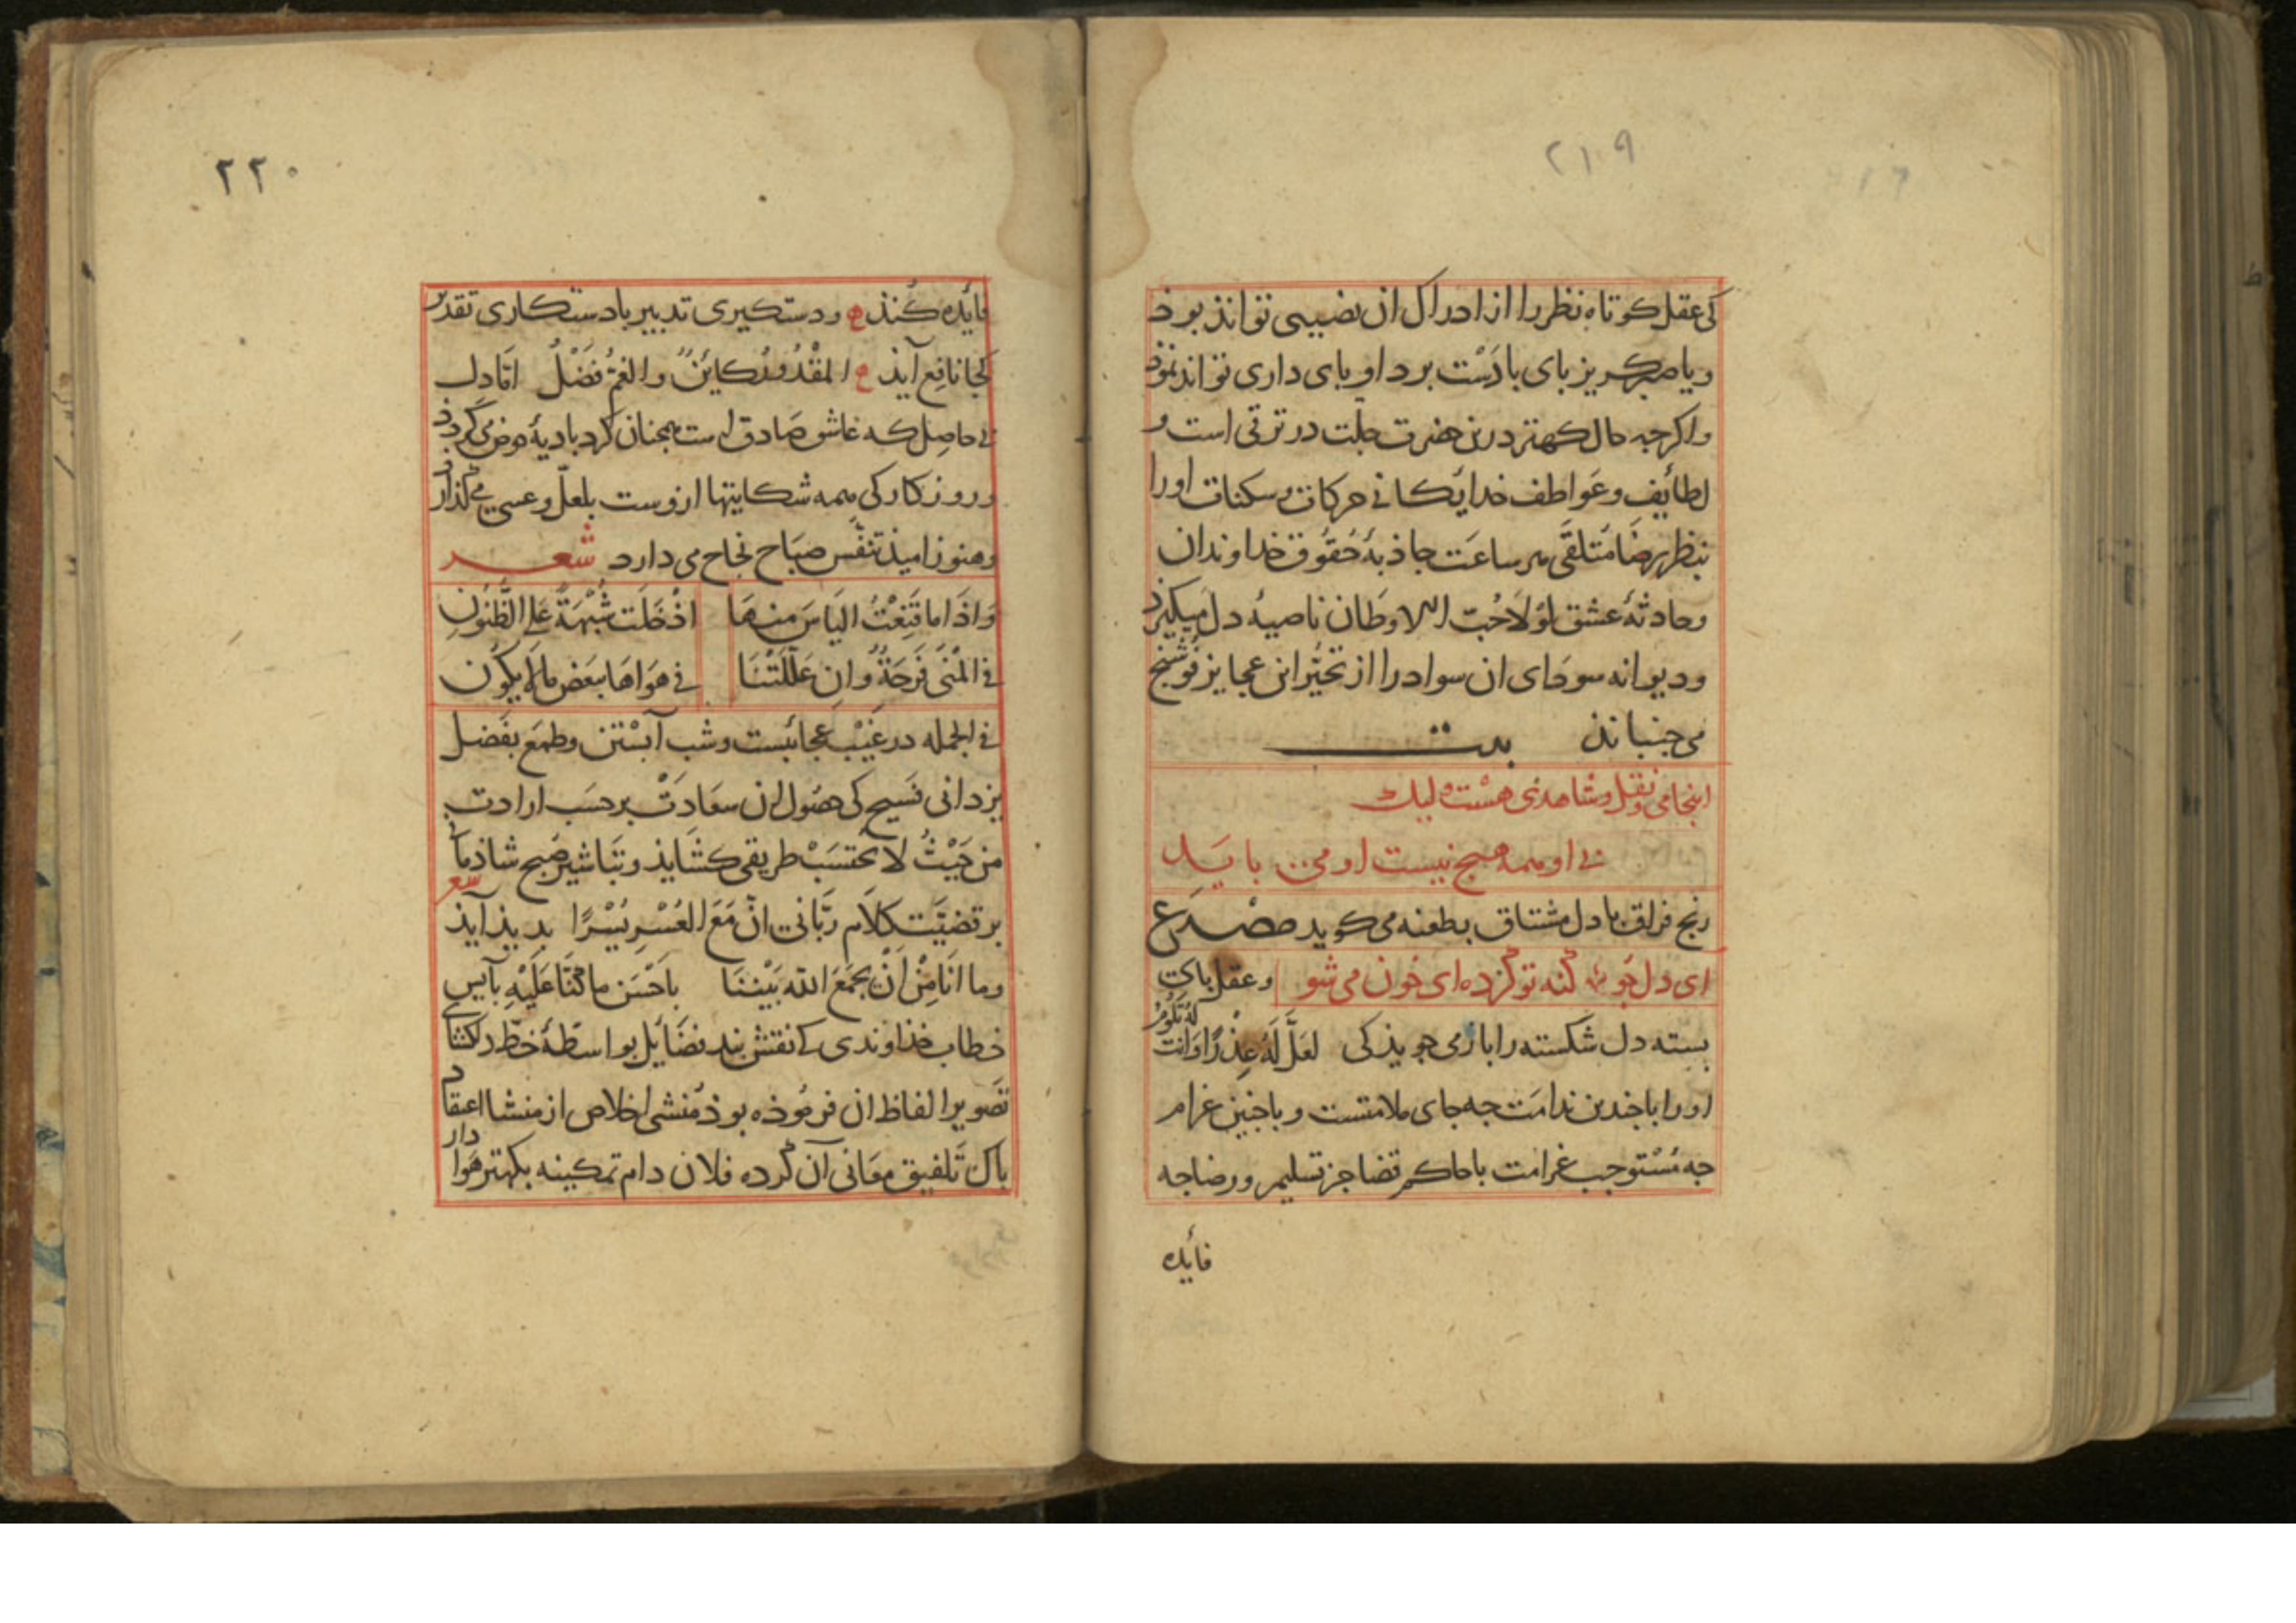 ٢١٩
کی عقل کوتاه نظر را از ادراک ان نصیبی تواند بوذ
ویا صبر کریز بای با دست برد او بای داری تواند نموذ
واکرجه حال کهتر درین حضرت جلت در ترقی است و
لطائف وعواطف خدایکانی حرکات وسکنات او را
بنظر رضا متلقی هر ساعت جاذبهٔ حقوق خداوندان
وحادثهٔ عشق لولا حب الاوطان ناصیهٔ دل میکیرذ
ودیوانه سودای ان سواد را از تحیر این عجایز فوشنج
می جنباند بیت
اینجا می ونقل وشاهدی هست ولیک
بی او همه هیچ نیست او می باید
رنج فراق با دل مشتاق بطعنه می کوید مصراع
ای دل جو کنه تو کرده ای خون می شو وعقل بای
بسته دل شکسته را باز می جویذ کی لعل له عذرا وانت
له تلوم
او را باجندین ندامت جه جای ملامتست وباجنین غرام
جه مستوجب غرامت باحاکم قضا جز تسلیم ورضا جه
فائده
٢٢٠
فائده کنذ ع ودستکیری تدبیر بادستکاری تقدیر
کجا نافع آیذ ع المقدور کائن والغم فضل اما دل
بی حاصل که عاشق صادق است همجنان کرد بادیهٔ هوس می کردذ
وروزکار کی همه شکایتها ازوست بلعل وعسی می کذارد
وهنوز امید تنفس صباح نجاح می دارد شعر
واذا ما قنعت الیاس منها اذ خلت شبهة علی الظنون
فی المنی فرحة وان عللتنا فی هواها ببعض ما لا یکون
فی الجمله در غیب عجائبست وشب آبستن وطمع بفضل
یزدانی فسیح کی حصول ان سعادت بر حسب ارادت
من حیث لا یحتسب طریقی کشایذ وتباشیر صبح شادمانی
بر قضیت کلام ربانی ان مع العسر یسرا بدیذ آیذ شعر
وما انا من ان یجمع الله بیننا باحسن ما کنا علیه بآیس
خطاب خذاوندی کی نقش بند فضایل بواسطهٔ خط دلکشای
تصویر الفاظ ان فرموذه بوذ ومنشی اخلاص از منشا اعتقاد
باک تلفیق معانی آن کرده فلان دام تمکینه بکهتر هوادار